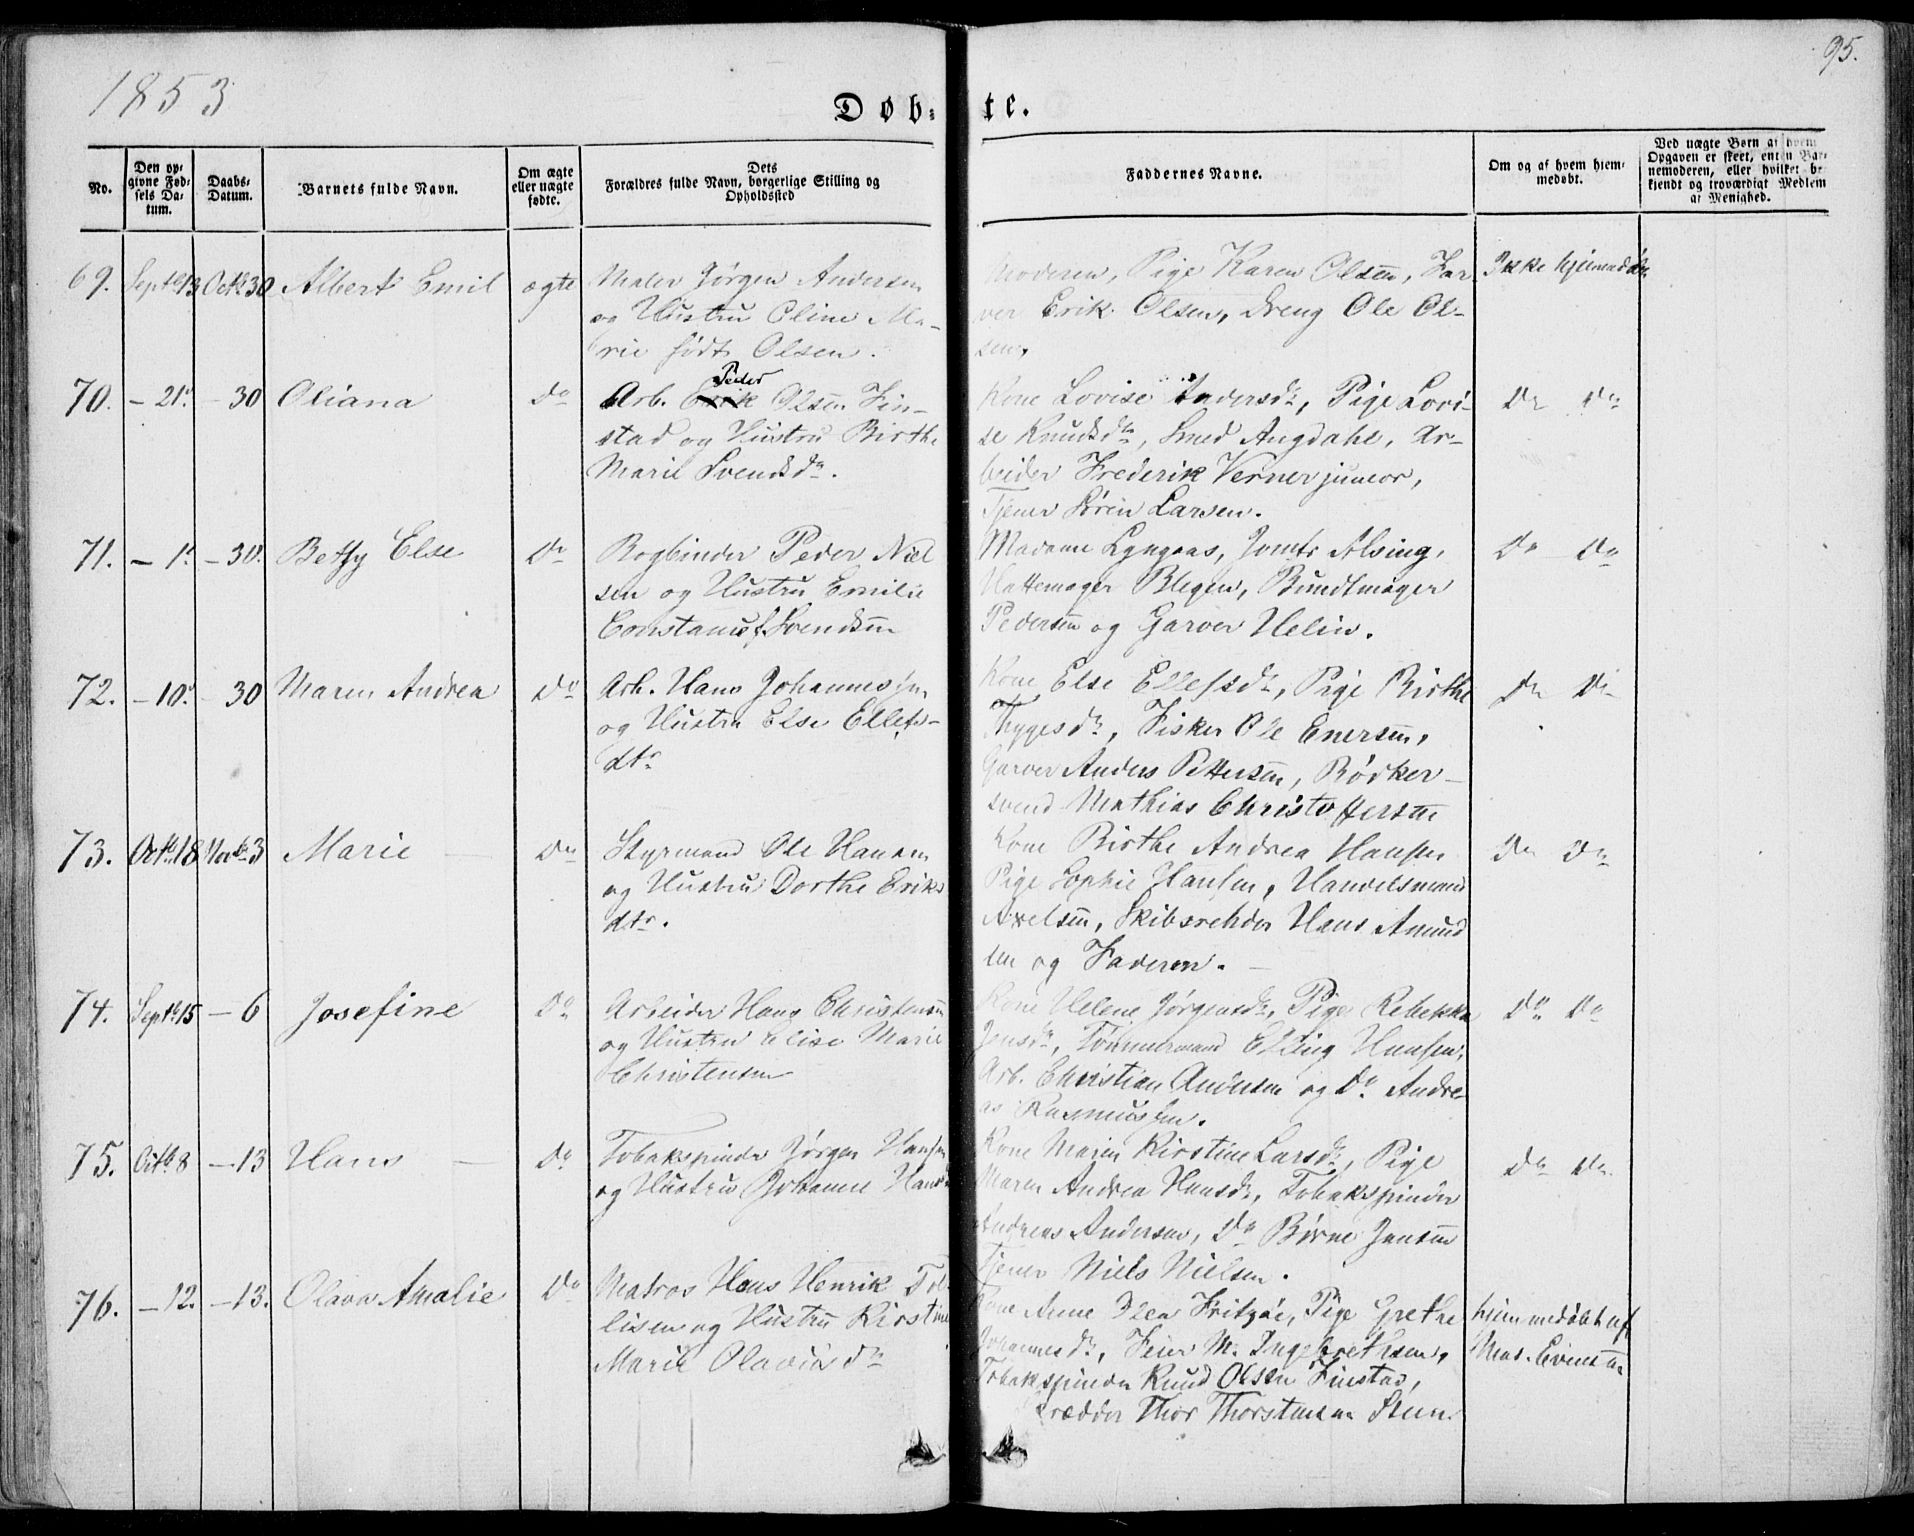 1853
95.
Døb-te.
No.
Den op-
givne Fød-
sels Da-
tum.
Daabs-
Datum.
Barnets fulde Navn.
Om ægte
eller uægte
fødte.
Dets
Forældres fulde Navn, borgerlige Stilling og
Opholdssted
Faddernes Navne.
Om og af hvem hjem-
medøbt.
Ved uægte Børn af hvem
Opgaven er skeet, enten Bar-
nemoderen, eller hvilket be-
kjendt og troværdigt Medlem
af Menighed.
69. Septbr 13 Octbr 30 Albert Emil ægte
Maler Jørgen Andersen
og Hustru Oline Ma-
rie født Olsen.
Moderen, Pige Karen Olsen, Far-
ver Erik Olsen, Dreng Ole Ol-
sen.
Ikke hjemmedøbt
70. - 21. - 30 Oliana Do
Arb. Erik Peder Olsen Fin-
stad og Hustru Birthe
Marie Svendsdr.
Kone Lovise Andersdr, Pige Lovi-
se Knudsdtr, Smed Angdahl, Ar-
beider Frederik Verner junior,
Tjener Søren Larsen.
Do Do
71. - 1. - 30. Betsy Else Do
Bogbinder Peder Niel
sen og Hustru Emilie
Constance f. Svendsen
Madame Lyngaas, Jomfr Alsing,
Hattemager Blegen, Bundtmager
Pedersen og Garver Helin.
Do Do
72. - 10. - 30 Maren Andrea Do
Arb. Hans Johannessen
og Hustru Else Ellefs-
dtr
Kone Else Ellefsdr, Pige Birthe
Thygesdr, Fisker Ole Enersen,
Garver Anders Pettersen, Bødker-
svend Mathias Christoffersen
Do Do
73. Octbr 18 Novbr 3 Marie Do
Styrmand Ole Hansen
og Hustru Dorthe Eriks
dtr.
Kone Birthe Andrea Hansen
Pige Sophie Hansen, Handelsmand
Axelsen, Skibsrehder Hans Amund
sen og Faderen.
Do Do
74. Septbr 15 - 6 Josefine Do
Arbeider Hans Christensen
og Hustru Elise Marie
Christensen
Kone Helene Jørgensdr, Pige Rebekka
Jensdr, Tømmermand Elling Hansen,
Arb. Christian Andersen og Do. Andre-
as Rasmussen.
Do Do
75. Octbr 8 - 13 Hans Do
Tobakspinder Jørgen Hansen
og Hustru Johanne Hans
Kone Maren Kirstine Larsdr, Pige
Maren Andrea Hansdr, Tobakspinder
Andreas Andersen, Do Børne Jensen
Tjener Niels Nielsen.
Do Do
76. - 12. - 13. Olava Amalie Do
Matros Hans Henrik Tol
lisen og Hustru Kirstine
Marie Olavesdtr
Kone Anne Olea Fritzøe, Pige Grethe
Johannesdr, Feier M. Ingebrethsen,
Tobakspinder Knud Olsen Finstad,
Skrædder Thor Thorstensen Steen
hjemmedøbt af
Mad. Evensen